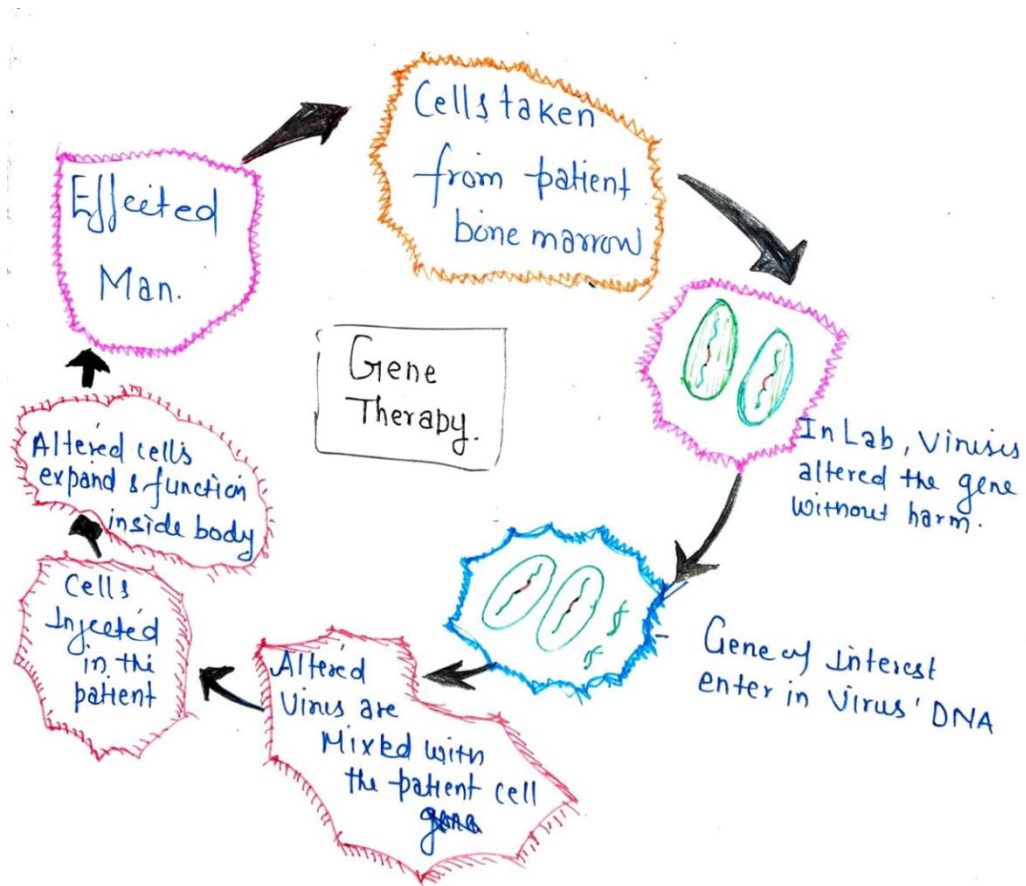 Effected
Man.
Cells taken
from patient
bone marrow
Gene
Therapy.
In Lab, Viruses
altered the gene
without harm.
Gene of interest
enter in Virus' DNA
Altered
Virus are
Mixed with
the patient cell
Cells
Injected
in the
patient
Altered cells
expand & function
inside body